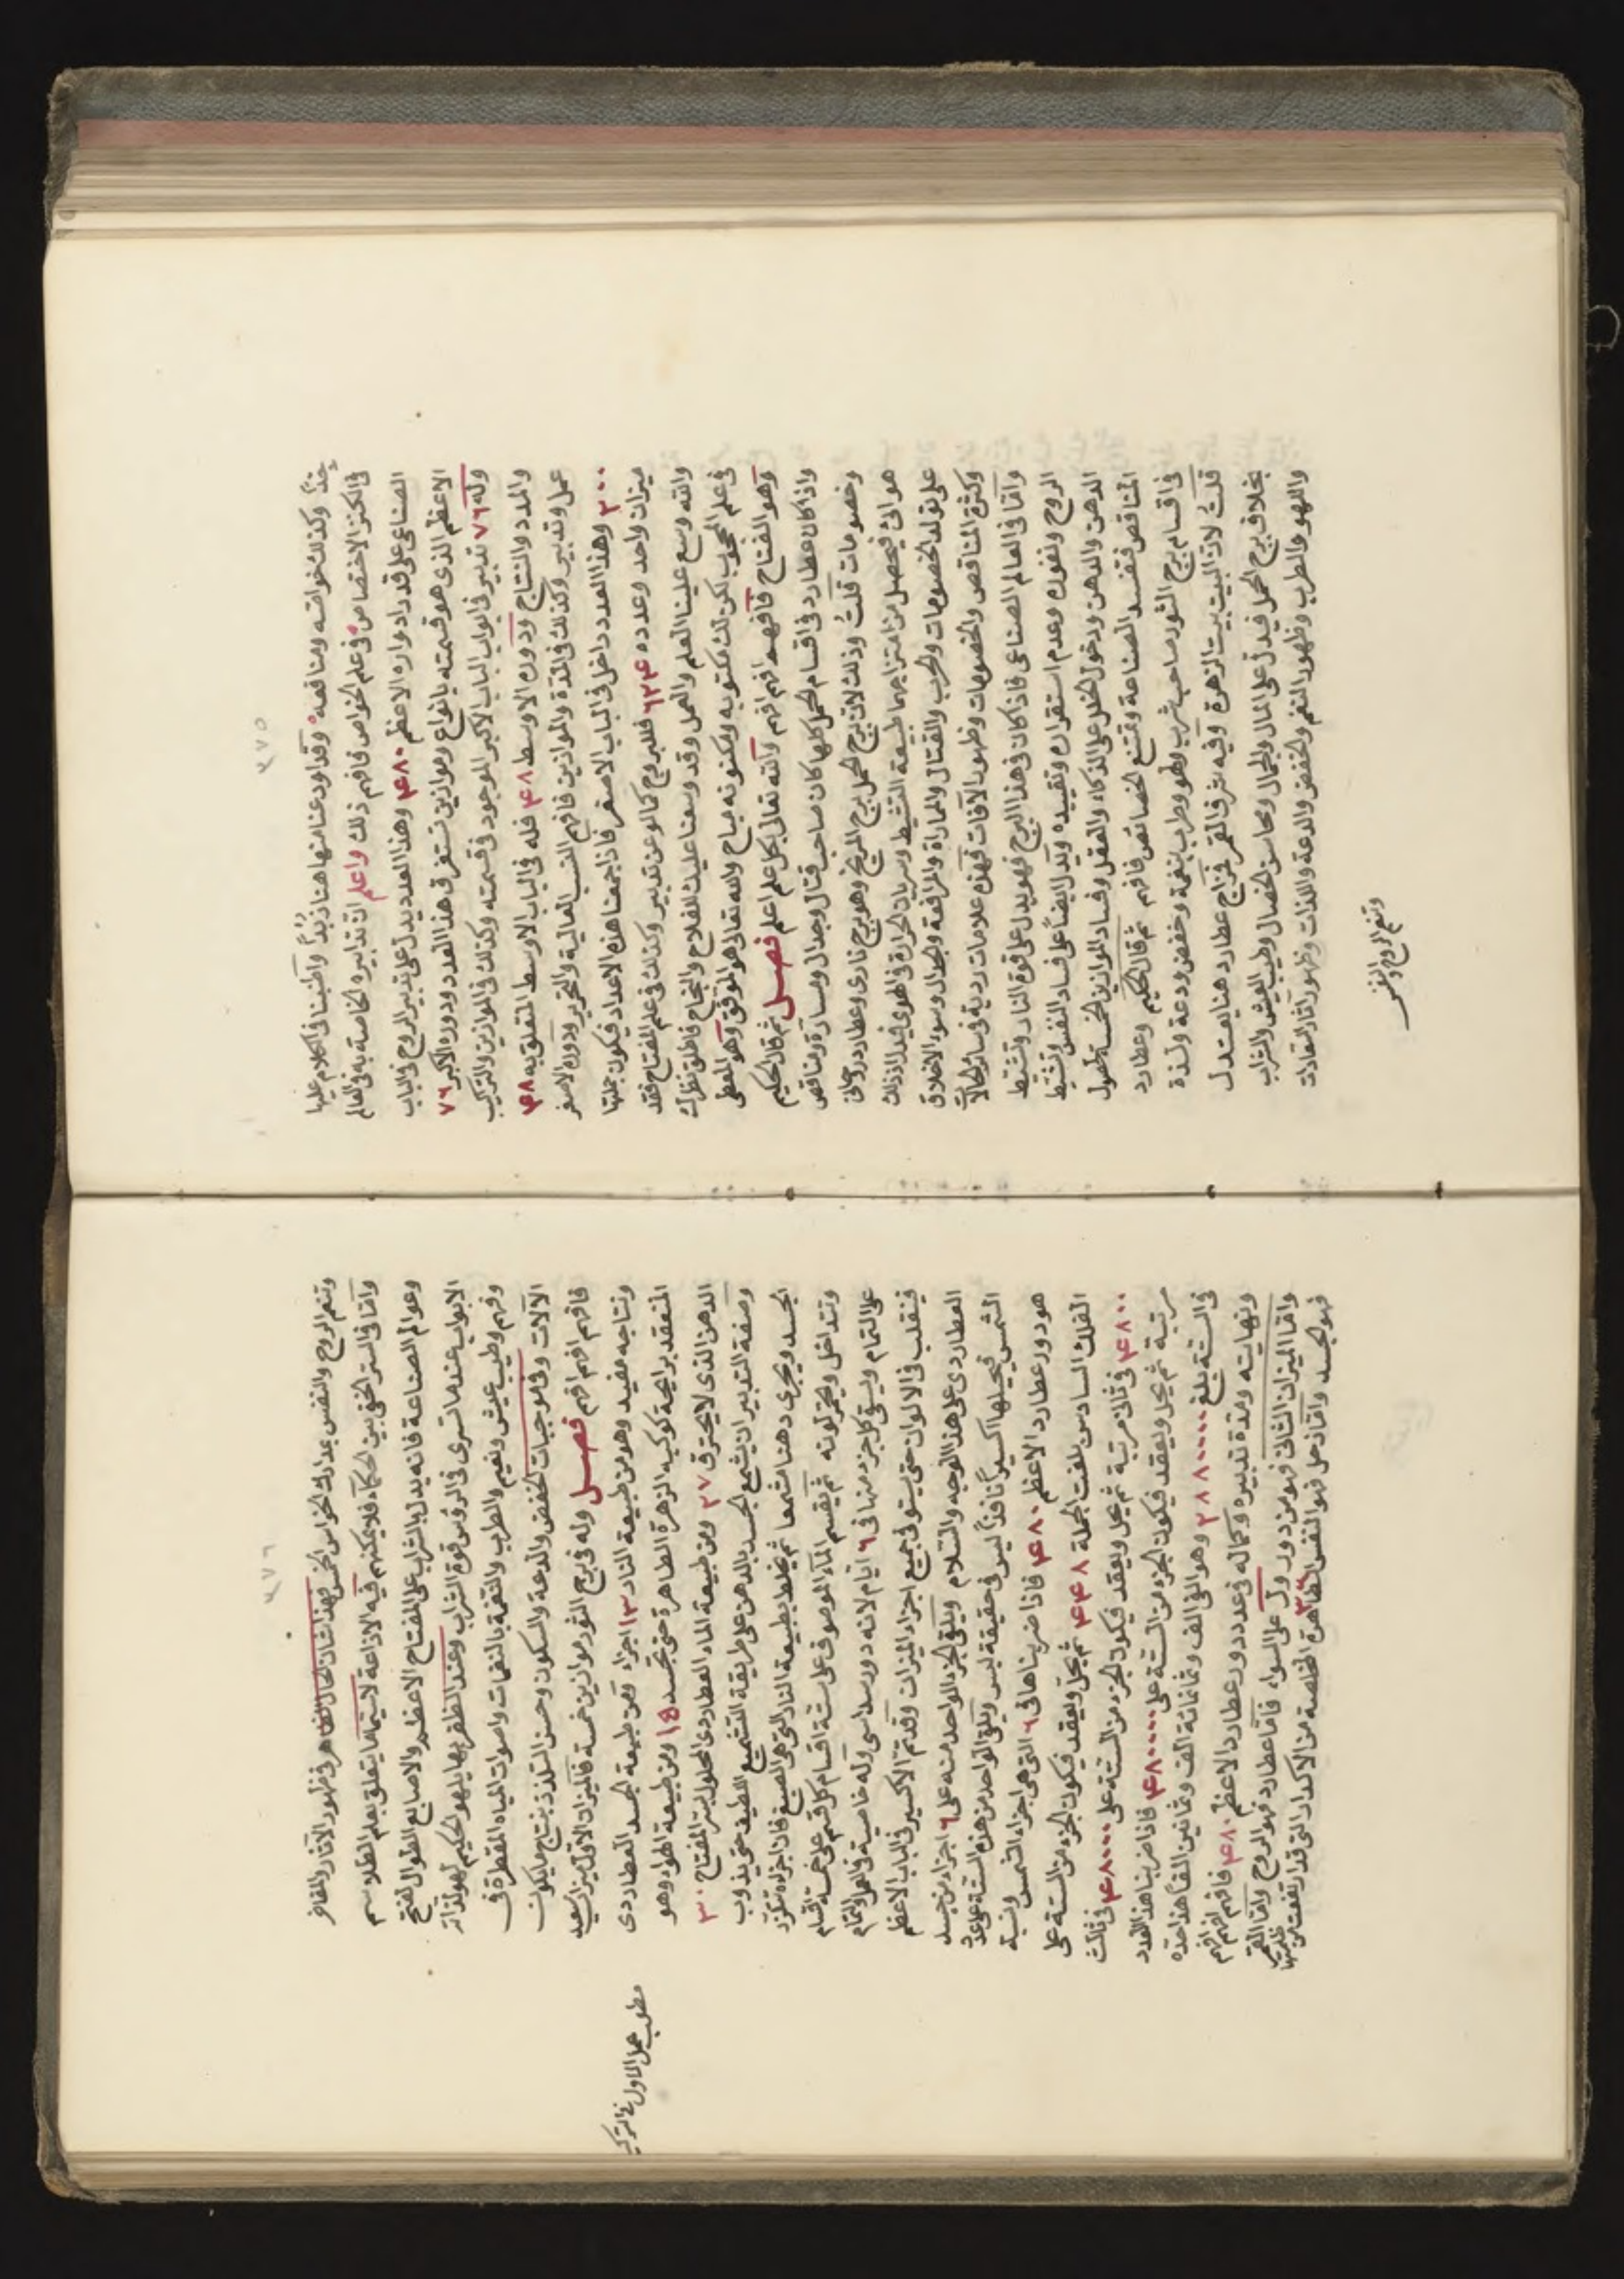 ٣٧٥
جدًّا وكذلك خواصه ومنافعه وقد اودعنا منها هنا زبدًا واطنبنا فى الكلام عليها
فى الكنز الاختصاص فى علم الخواص فافهم ذلك واعلم ان تدابيره الخاصة به فى العالم
الصناعى على قدر ادواره الاعظم ٤٨٠ وهذا العدد يدل على تدبير الروح فى الباب
الاعظم الذى هو قسمته بانواع وموازين تستغرق هذا العدد ودوره الاكبر ٧٦
وله ٧٦ تدبير فى ابواب الباب الاكبر الموجود فى قسمته وكذلك فى الموازين والتركيب
والمدد والنتاج ودوره الاوسط ٤٨ فله فى الباب الاوسط المتعلق به ٤٨
عمل وتدبير وكذلك فى المدة والموازين فافهم النسب العالية والتحرير ودوره الاصغر
٢٠ وهذا العدد داخل فى الباب الاصغر فاذا جمعنا هذه الاعداد فيكون جملتها
ميزان واحد وعدده ٦٢٤ فللبروج كما لو عن تدبير وكذلك فى علم المفتاح فقد
والله وسع علينا العلم والعمل وقد وسعنا عليك الفلاح والنجاح فاطلق نظرك
فى علم المحجوب لكن لك مكتوبه ومكنونه مباح والله تعالى هو الموفق وهو المعطى
وهو الفتاح فافهم افهم افهم والله تعالى بكل علم اعلم فصل ثم قال الحكيم
واذا كان عطارد فى اقسام الحمل كلها كان صاحب قتال وجدال ومسارة ومناقص
وخصومات قلت وذلك لان برج الحمل برج المريخ وهو برج نارى وعطارد روحانى
هوائى فيحصل من امتزاجهما طبيعة التنشيط وسريان الحرارة فى الهوى فيدل ذلك
على تولد الخصومات والحرب والقتال والمماراة والمرافعة والجدال وسوء الاخلاق
وكثرة المناقص والخصومات وظهور الآفات فهذه علامات ردية فى سائر الحالات
وامّا فى العالم الصناعى فاذا كان فى هذا البرج فهو يدل على قوة النار وتشيّط
الروح ونفوره وعدم استقراره وتقييده ويدل ايضًا على فساد النفس وتشيّط
الدهن والدهن ودخول الخلل على الذكاء والعقل وفساد الموازين الخمسة لحصول
المناقص فتفسد الصناعة وتمتنع الخصائص فافهم ثم قال الحكيم وعطارد
فى اقسام برج الثور صاحب شرب ولهو وطرب بنغمة وخفض ودعة ولذة
قلت لان البيت بيت الزهرة وفيه شرف القمر فمزاج عطارد هنا يعتدل
بخلاف برج الحمل فيدل على المال والجمال ومحاسن الخصال وطيب العيش والشراب
واللهو والطرب وظهور النغم والخفض والدعة واللذات وظهور آثار السعادات
وتنعم الروح والنفس
٣٧٦
وتنعم الروح والنفس بمدارك الحواس الخمس فهذا شان الحال الظاهر فى ظهور الآثار والمفاخر
وامّا فى السر الخفى بين الحكماء فلا يمكنهم فيه الاذاعة لاسيما ما يتعلق بعلم الطلاسم
وعوالم الصناعة فانه يدل بالشراب على المفتاح الاعظم والاصابع الطوال لفتح
الابواب عند ما تسرى فى الرؤس قوة الشراب وعند الظفر بها يلهو الحكيم لهو لذاتى
وفهم وطيب عيش ونعيم والطرب والنغمة بالنغمات واصوات المياه المقطرة فى
الآلات وفى موجبات الخفض والدعة والسكون وحسن التلذذ بنتاج ما يكون
فافهم افهم افهم فصل وله فى برج الثور موازين خمسة فالميزان الاول ميزان سعيد
ونتاجه مفيد وهو من طبيعة النار ١٣ اجزاء ومن طبيعة الجسد العطاردى
المنعقد برايحة كوكبه الزهرة الطاهرة حتى تجسد ١٥ ومن طبيعة الهواء وهو
الدهن الذى لا يحترق ٢٧ ومن طبيعة الماء العطاردى المحلول بسر المفتاح ٣٠
وصفة التدبير ان يشمع الجسد بالدهن على طريقة التشميع اللطيف حتى يذوب
الجسد ويجرى دهنا مشمعا ثم يخلط بطبيعة النار التى هى الصبغ فان اجزاءه تتزرد
وتتداخل ويحمر لونه ثم يقسم الماء الموصوف على ستة اقسام كل قسم على خمسة اقسام
على التمام ويسقى كل جزء منها فى ٦ ايام لانه دور سداسى وله خاصية فى العمل والتمام
فينقلب فى الالوان حتى يستوفى جميع اجزاء الميزان وقد تم الاكسير فى الباب الاعظم
العطاردى على هذا الوجه والسلام ويلقى الجزء الواحد منه على ٦ اجزاء من جسد
الشمس فيحيلها اكسيرًا نافذًا ليس فى حقيقة لبس ويلقى الواحد من هذه الستة على عدد
هو دور عطارد الاعظم ٤٨٠ فاذا ضربناها فى ٦ التى هى اجزاء الشمس ونسبة
الفلك السادس بلغت الجملة ٤٤٨ ثم يحل ويعقد فيكون الجزء من الستة على
٤٨٠٠ فى ثلث مرتبة ثم يحل ويعقد فيكون الجزء من الستة على ٤٨٠٠٠ فى ثالث
مرتبة ثم يحل ويعقد فيكون الجزء من الستة على ٤٨٠٠٠٠ فاذا ضربنا هذا العدد
فى الستة بلغ ٢٨٨٠٠٠٠ وهو الفى الف وثمانمائة الف وثمانين الفًا هذا حده
ونهايته ومدة تدبيره وكماله فى عدد دور عطارد الاعظم ٤٨٠ فافهم افهم افهم
وامّا الميزان الثانى فهو من دور ول على السواء فامّا عطارد فهو الروح وامّا القمر
فهو الجسد وامّا زحل فهو النفس الطاهرة الخالصة من الاكدار التى قد ارتفعت من ظلمتها
مطلب عمل الاول فى التركيب